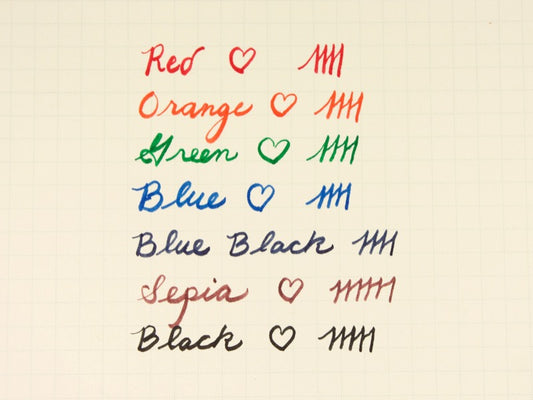 Red ♡
Orange ♡
Green ♡
Blue ♡
Blue Black
Sepia ♡
Black ♡